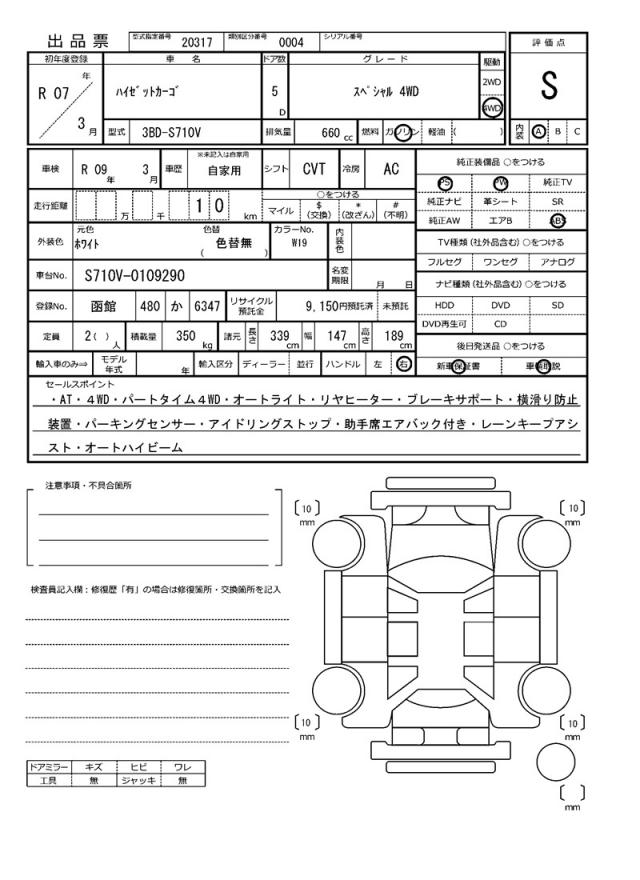 出品票 型式指定番号 20317 類別区分番号 0004 シリアル番号
評価点
S
内装 A B C
初年度登録 車名 ドア数 グレード 駆動
R 07 年 3 月 ハイゼットカーゴ 5 D スペシャル 4WD 2WD 4WD
型式 3BD-S710V 排気量 660 cc 燃料 ガソリン 軽油 ( )
車検 R 09 年 3 月 車歴 ※未記入は自家用 自家用 シフト CVT 冷房 AC
走行距離 万 千 1 0 km ○をつける
マイル $ (交換) * (改ざん) # (不明)
外装色 元色 ホワイト 色替 色替無 ( ) カラーNo. W19 内装色
車台No. S710V-0109290 名変期限 月 日
登録No. 函館 480 か 6347 リサイクル預託金 9,150円預託済 未預託
定員 2( ) 人 積載量 350 kg 諸元 長さ 339 cm 幅 147 cm 高さ 189 cm
輸入車のみ⇒ モデル年式 年 輸入区分 ディーラー 並行 ハンドル 左 右
純正装備品 ○をつける
PS PW 純正TV
純正ナビ 革シート SR
純正AW エアB ABS
TV種類(社外品含む)○をつける
フルセグ ワンセグ アナログ
ナビ種類(社外品含む)○をつける
HDD DVD SD
DVD再生可 CD
後日発送品 ○をつける
新車保証書 車輌取説
セールスポイント
・AT・4WD・パートタイム4WD・オートライト・リヤヒーター・ブレーキサポート・横滑り防止
装置・パーキングセンサー・アイドリングストップ・助手席エアバック付き・レーンキープアシ
スト・オートハイビーム
注意事項・不具合箇所
検査員記入欄：修復歴「有」の場合は修復箇所・交換箇所を記入
ドアミラー キズ ヒビ ワレ
工具 無 ジャッキ 無
[10] mm [10] mm
[10] mm [10] mm
[ ] mm